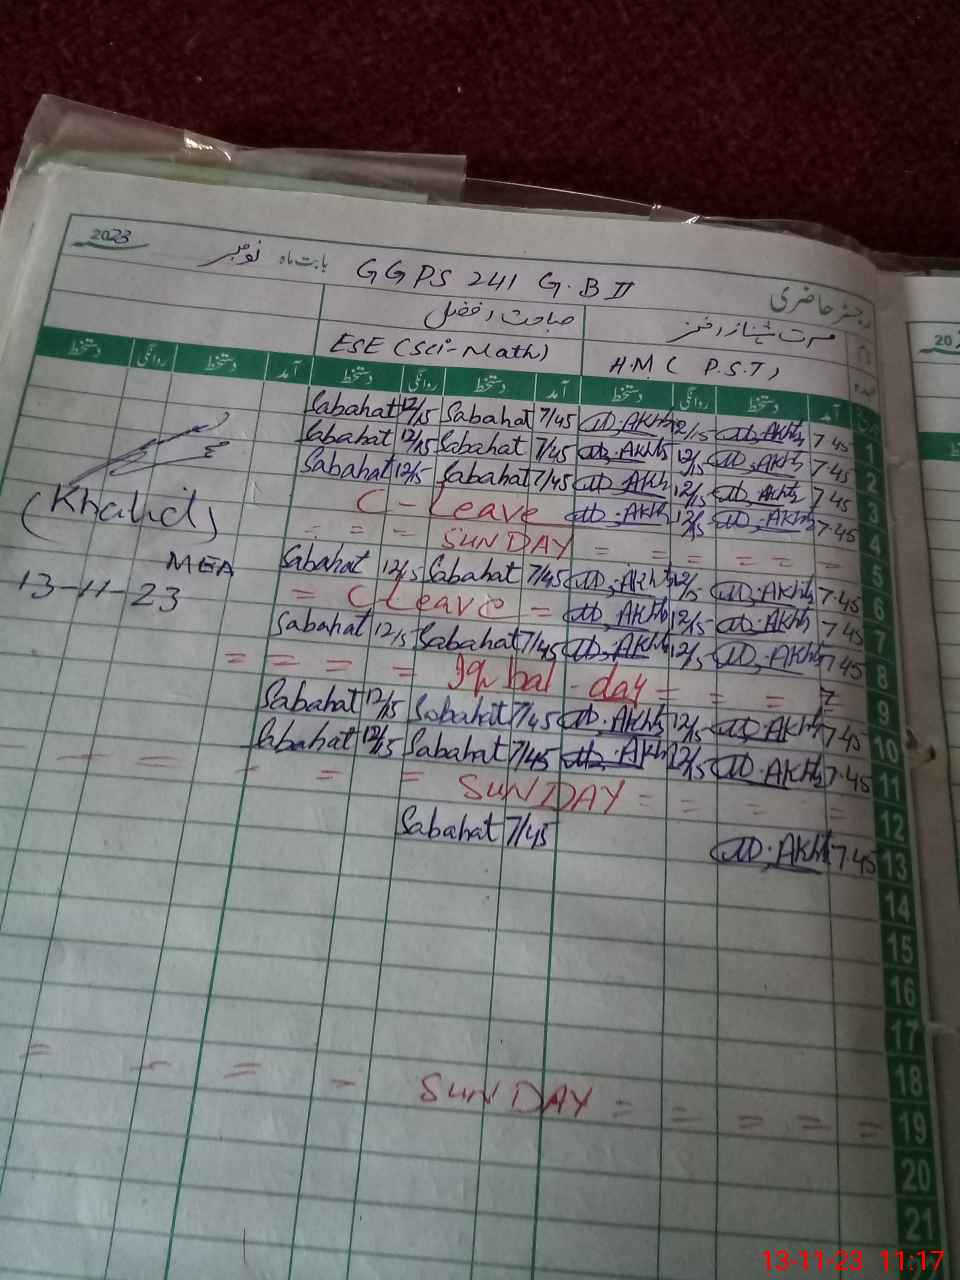 رجسٹر حاضری GGPS 241 G.B II بابت ماہ نومبر 2023
ESE (Sci-Math)
H.M ( P.S.T )
آمد دستخط روانگی دستخط آمد دستخط روانگی دستخط آمد دستخط روانگی دستخط
Sabahat 12/15 Sabahat 7/45 Akhtr 12/15 Akhtr 7.45 1
Sabahat 12/15 Sabahat 7/45 Akhtr 12/15 Akhtr 7.45 2
Sabahat 12/15 Sabahat 7/45 Akhtr 12/15 Akhtr 7.45 3
C - Leave Akhtr 12/15 Akhtr 7.45 4
= = = SUNDAY = = = = = 5
Sabahat 12/15 Sabahat 7/45 Akhtr 12/15 Akhtr 7.45 6
= C Leave = Akhtr 12/15 Akhtr 7.45 7
Sabahat 12/15 Sabahat 7/45 Akhtr 12/15 Akhtr 7.45 8
= = = = Iqbal - day = = = = 9
Sabahat 12/15 Sabahat 7/45 Akhtr 12/15 Akhtr 7.45 10
Sabahat 12/15 Sabahat 7/45 Akhtr 12/15 Akhtr 7.45 11
- - - = = SUNDAY = = = = 12
Sabahat 7/45 Akhtr 7.45 13
14
15
16
17
18
= - = - SUNDAY = = = = = 19
20
21
(Khalid)
MEA
13-11-23
13-11-23 11:17